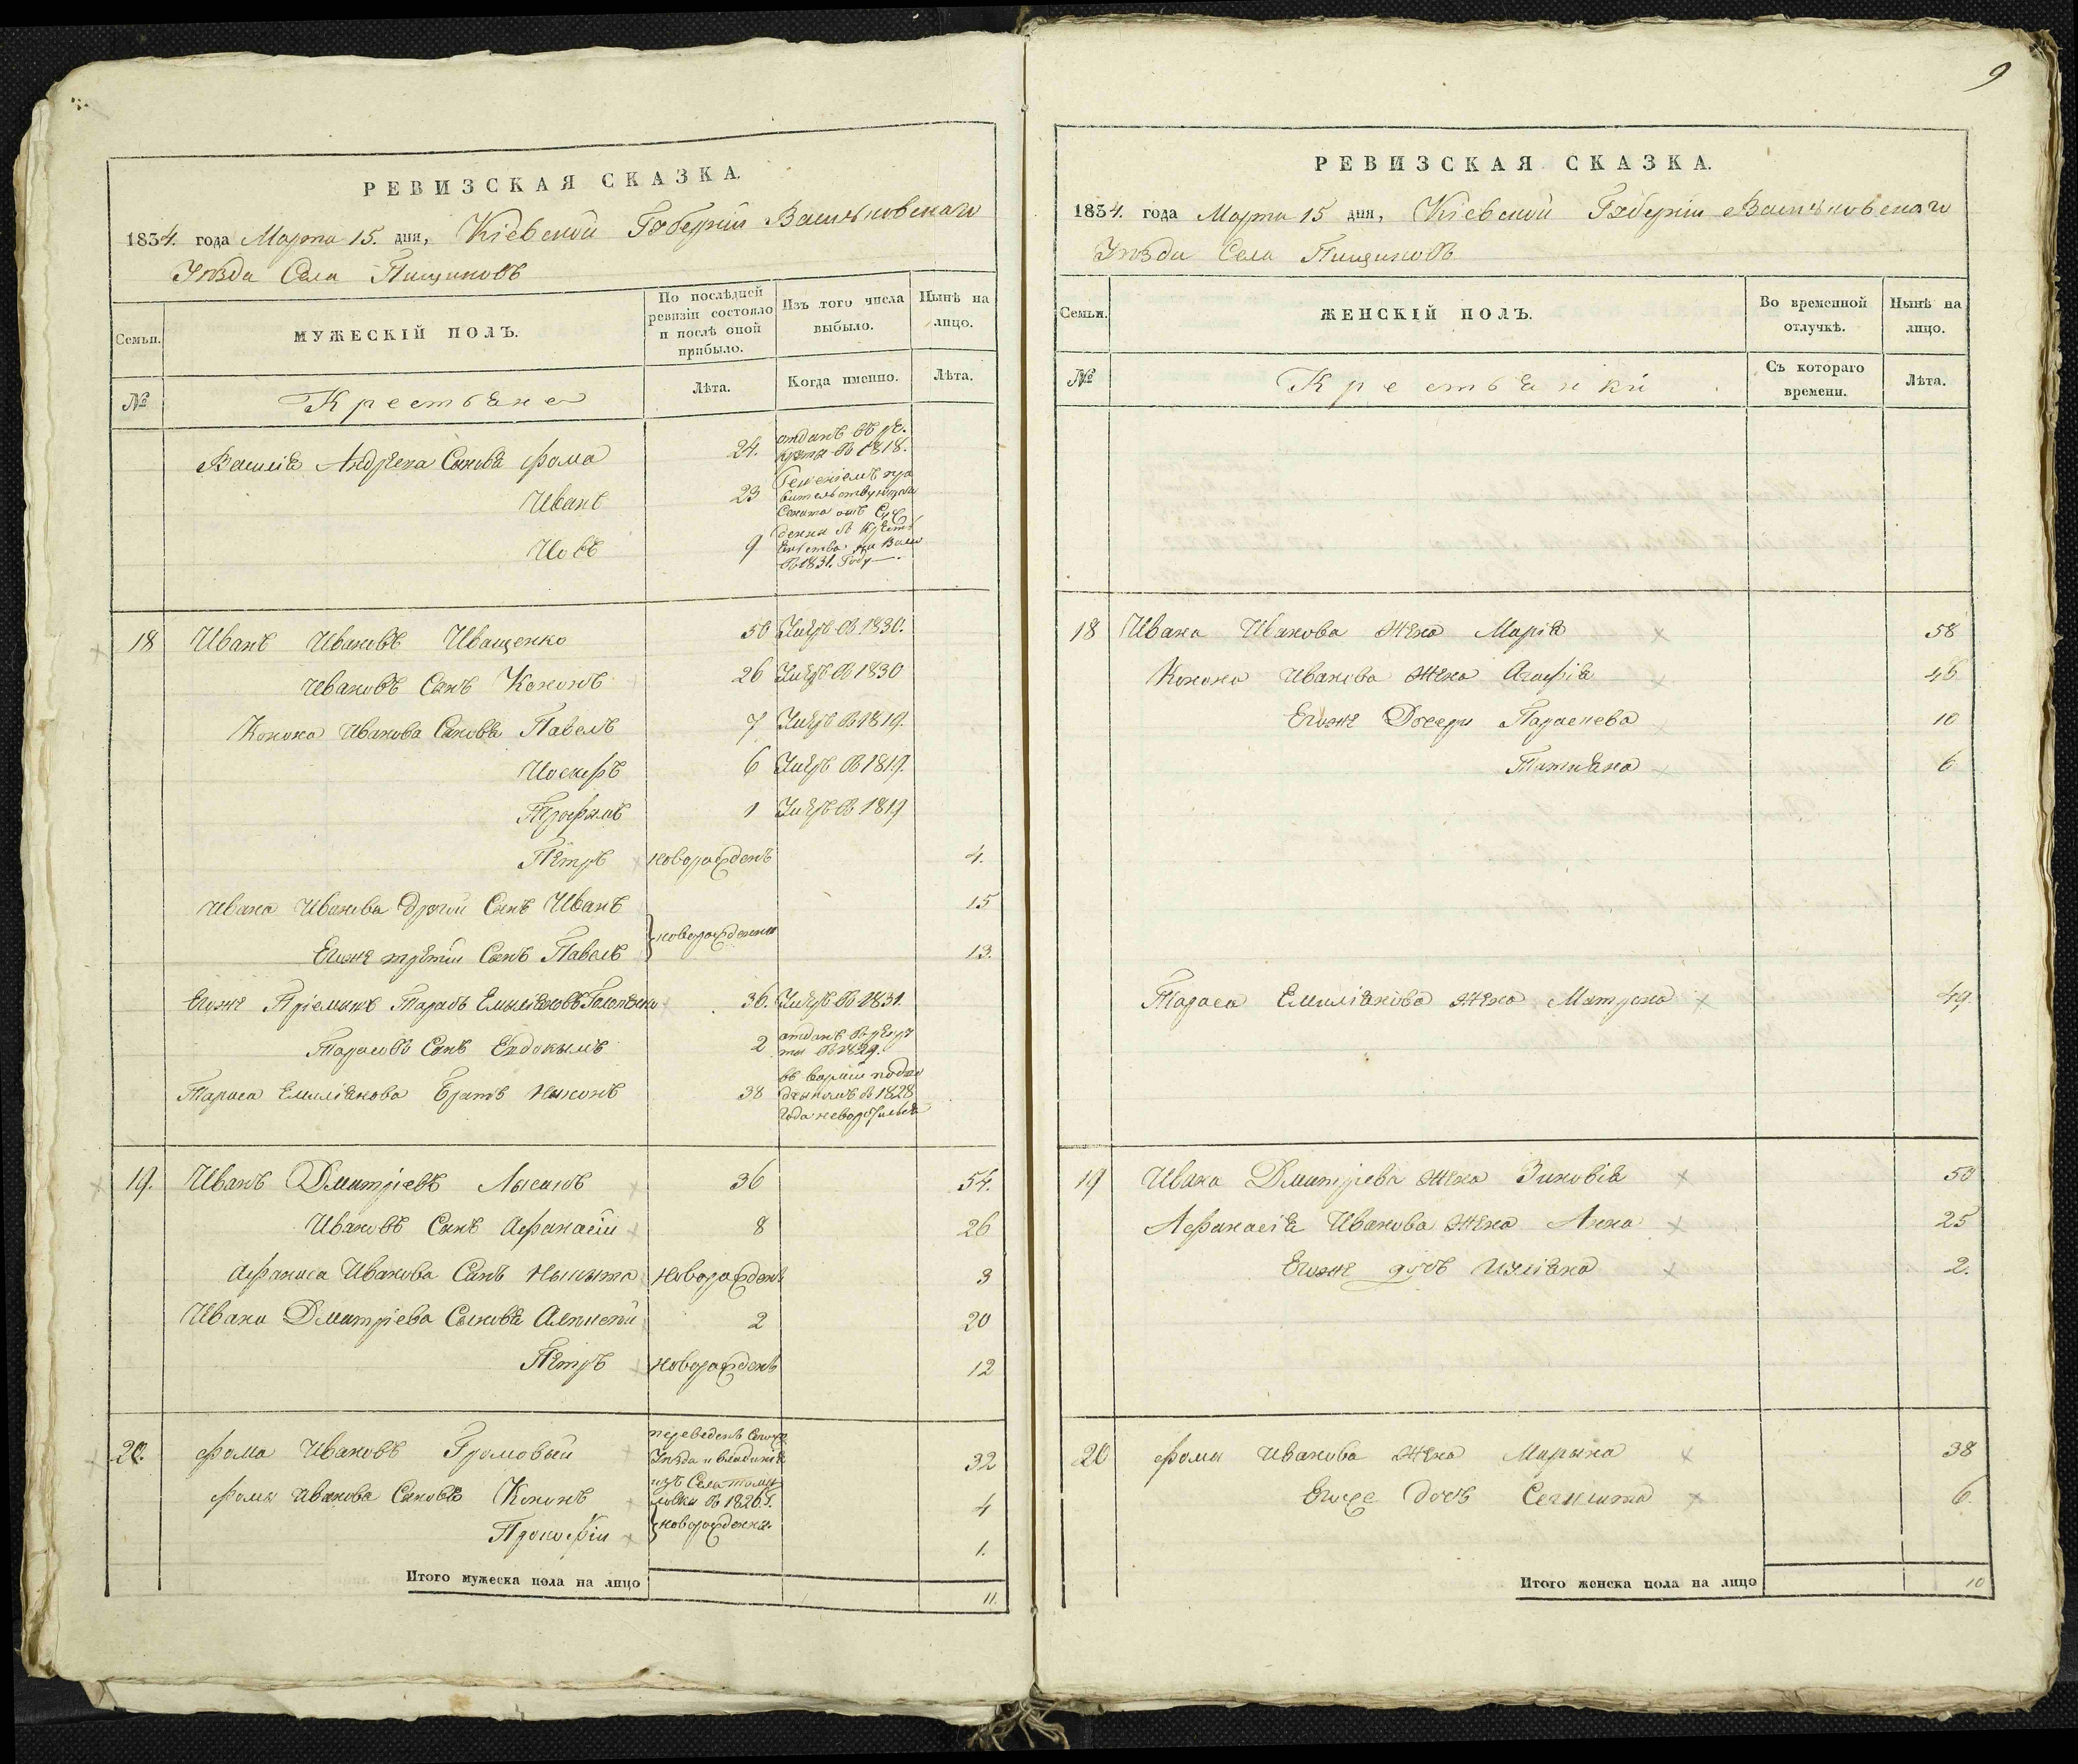 РЕВИЗСКАЯ СКАЗКА.
1834. года Марта 15. дня, Кіевской Губерніи Васильковскаго
Уѣзда Села Пищиковъ
Семьи. МУЖЕСКІЙ ПОЛЪ. По послѣдней ревизіи состояло и послѣ оной прибыло. Изъ того числа выбыло. Нынѣ на лицо.
№ Крестьяне Лѣта. Когда именно. Лѣта.
Василія Андреева Сыновья Фома 24. отданъ въ рекруты въ 1818.
Иванъ 23
Іовъ 9 въ 1831. Году
18 Иванъ Ивановъ Иващенко 50 Умеръ въ 1830.
Ивановъ Сынъ Кононъ 26 Умеръ въ 1830
Конона Иванова Сыновья Павелъ 7 Умеръ въ 1819.
Иосифъ 6 Умеръ въ 1819.
Трофимъ 1 Умеръ въ 1819
Петръ новорожденъ 4.
Ивана Иванова другой Сынъ Иванъ 15
Егоже третій Сынъ Павелъ новорожденны 13.
Егоже Пріемышъ Тарасъ Емиліяновъ 36. Умеръ въ 1831.
Тарасовъ Сынъ Евдокымъ 2 отданъ въ рекруты въ 1829.
Тараса Емиліянова Братъ Никонъ 38 въ 1828 года
19. Иванъ Дмитріевъ Лысакъ 36 54.
Ивановъ Сынъ Афанасій 8 26
Афанаса Иванова Сынъ Никита новорожденъ 3
Ивана Дмитріева Сыновья Алексей 2 20
Петръ новорожденъ 12
20. Фома Ивановъ Громовый переведенъ Уѣзда и владенія изъ Села 32
Фомы Иванова Сыновья Кононъ въ 1826 г. 4
Прокофій новорожденны 1.
Итого мужеска пола на лицо 11.
9
РЕВИЗСКАЯ СКАЗКА.
1834. года Марта 15 дня, Кіевской Губерніи Васильковскаго
Уѣзда Села Пищиковъ
Семьи. ЖЕНСКІЙ ПОЛЪ. Во временной отлучкѣ. Нынѣ на лицо.
№ Крестьянки Съ котораго времени. Лѣта.
18 Ивана Иванова Жена Марія 58
Конона Иванова Жена Агафія 46
Егоже Дочери Параскева 10
Татіяна 6
Тараса Емиліянова Жена Матрона 49.
19 Ивана Дмитріева Жена Зиновія 50
Афанасія Иванова Жена Анна 25
Егоже дочь Уліяна 2.
20 Фомы Иванова Жена Марына 38
Егоже дочь 6.
Итого женска пола на лицо 10